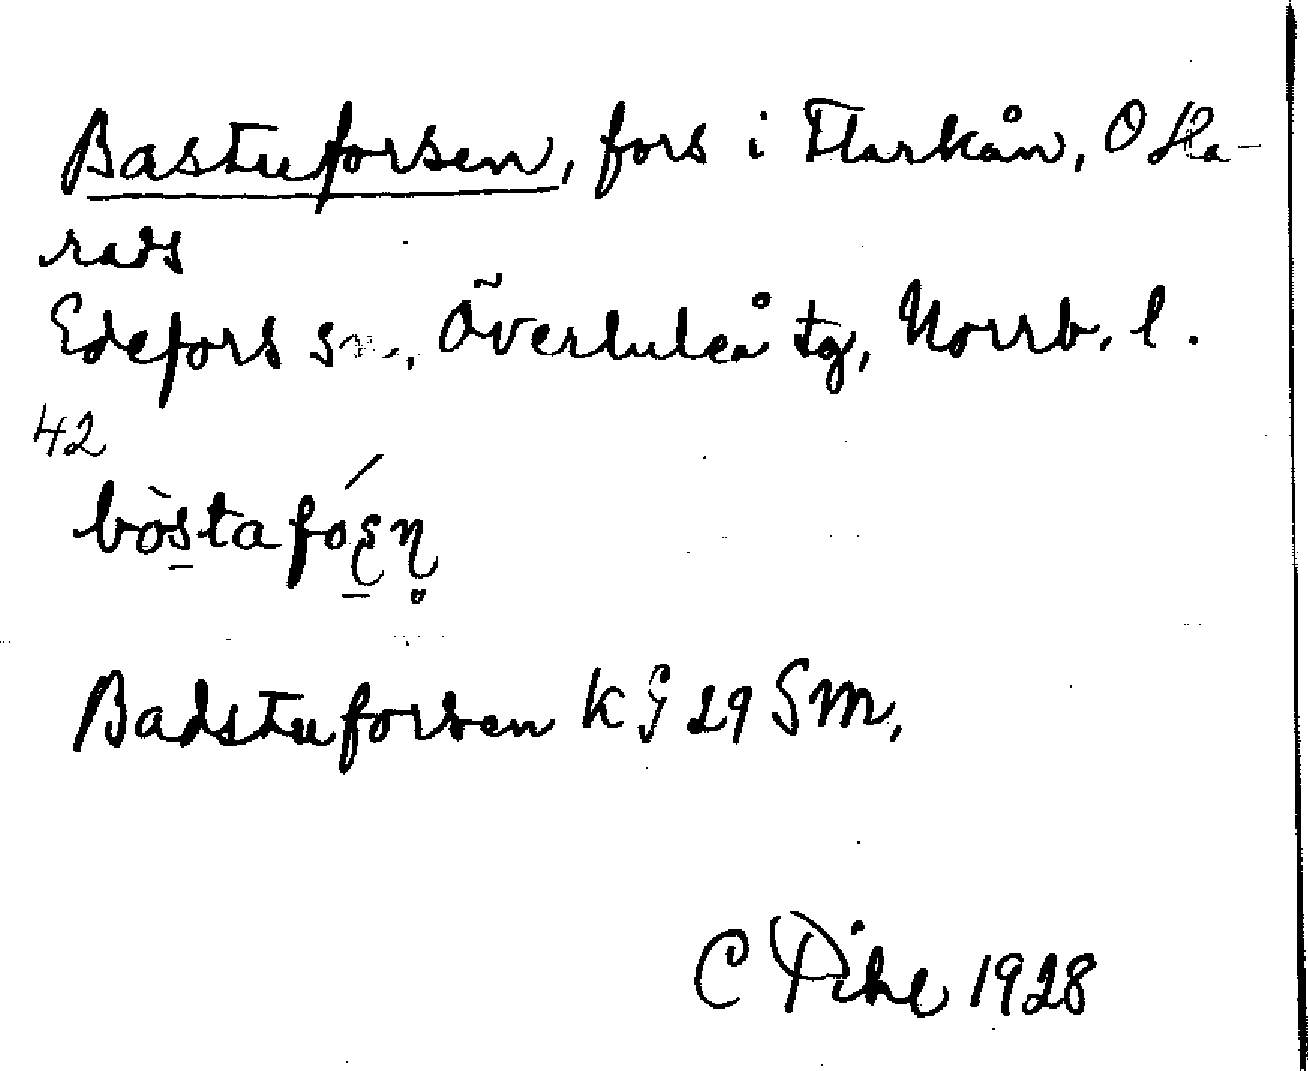 Bastuforsen, fors i Flarkån, O Ha-
rads
Edefors sn. Överluleå tg, Norrb. l.
42
Badstuforsen k G 29 SM,
C Pihl 1928